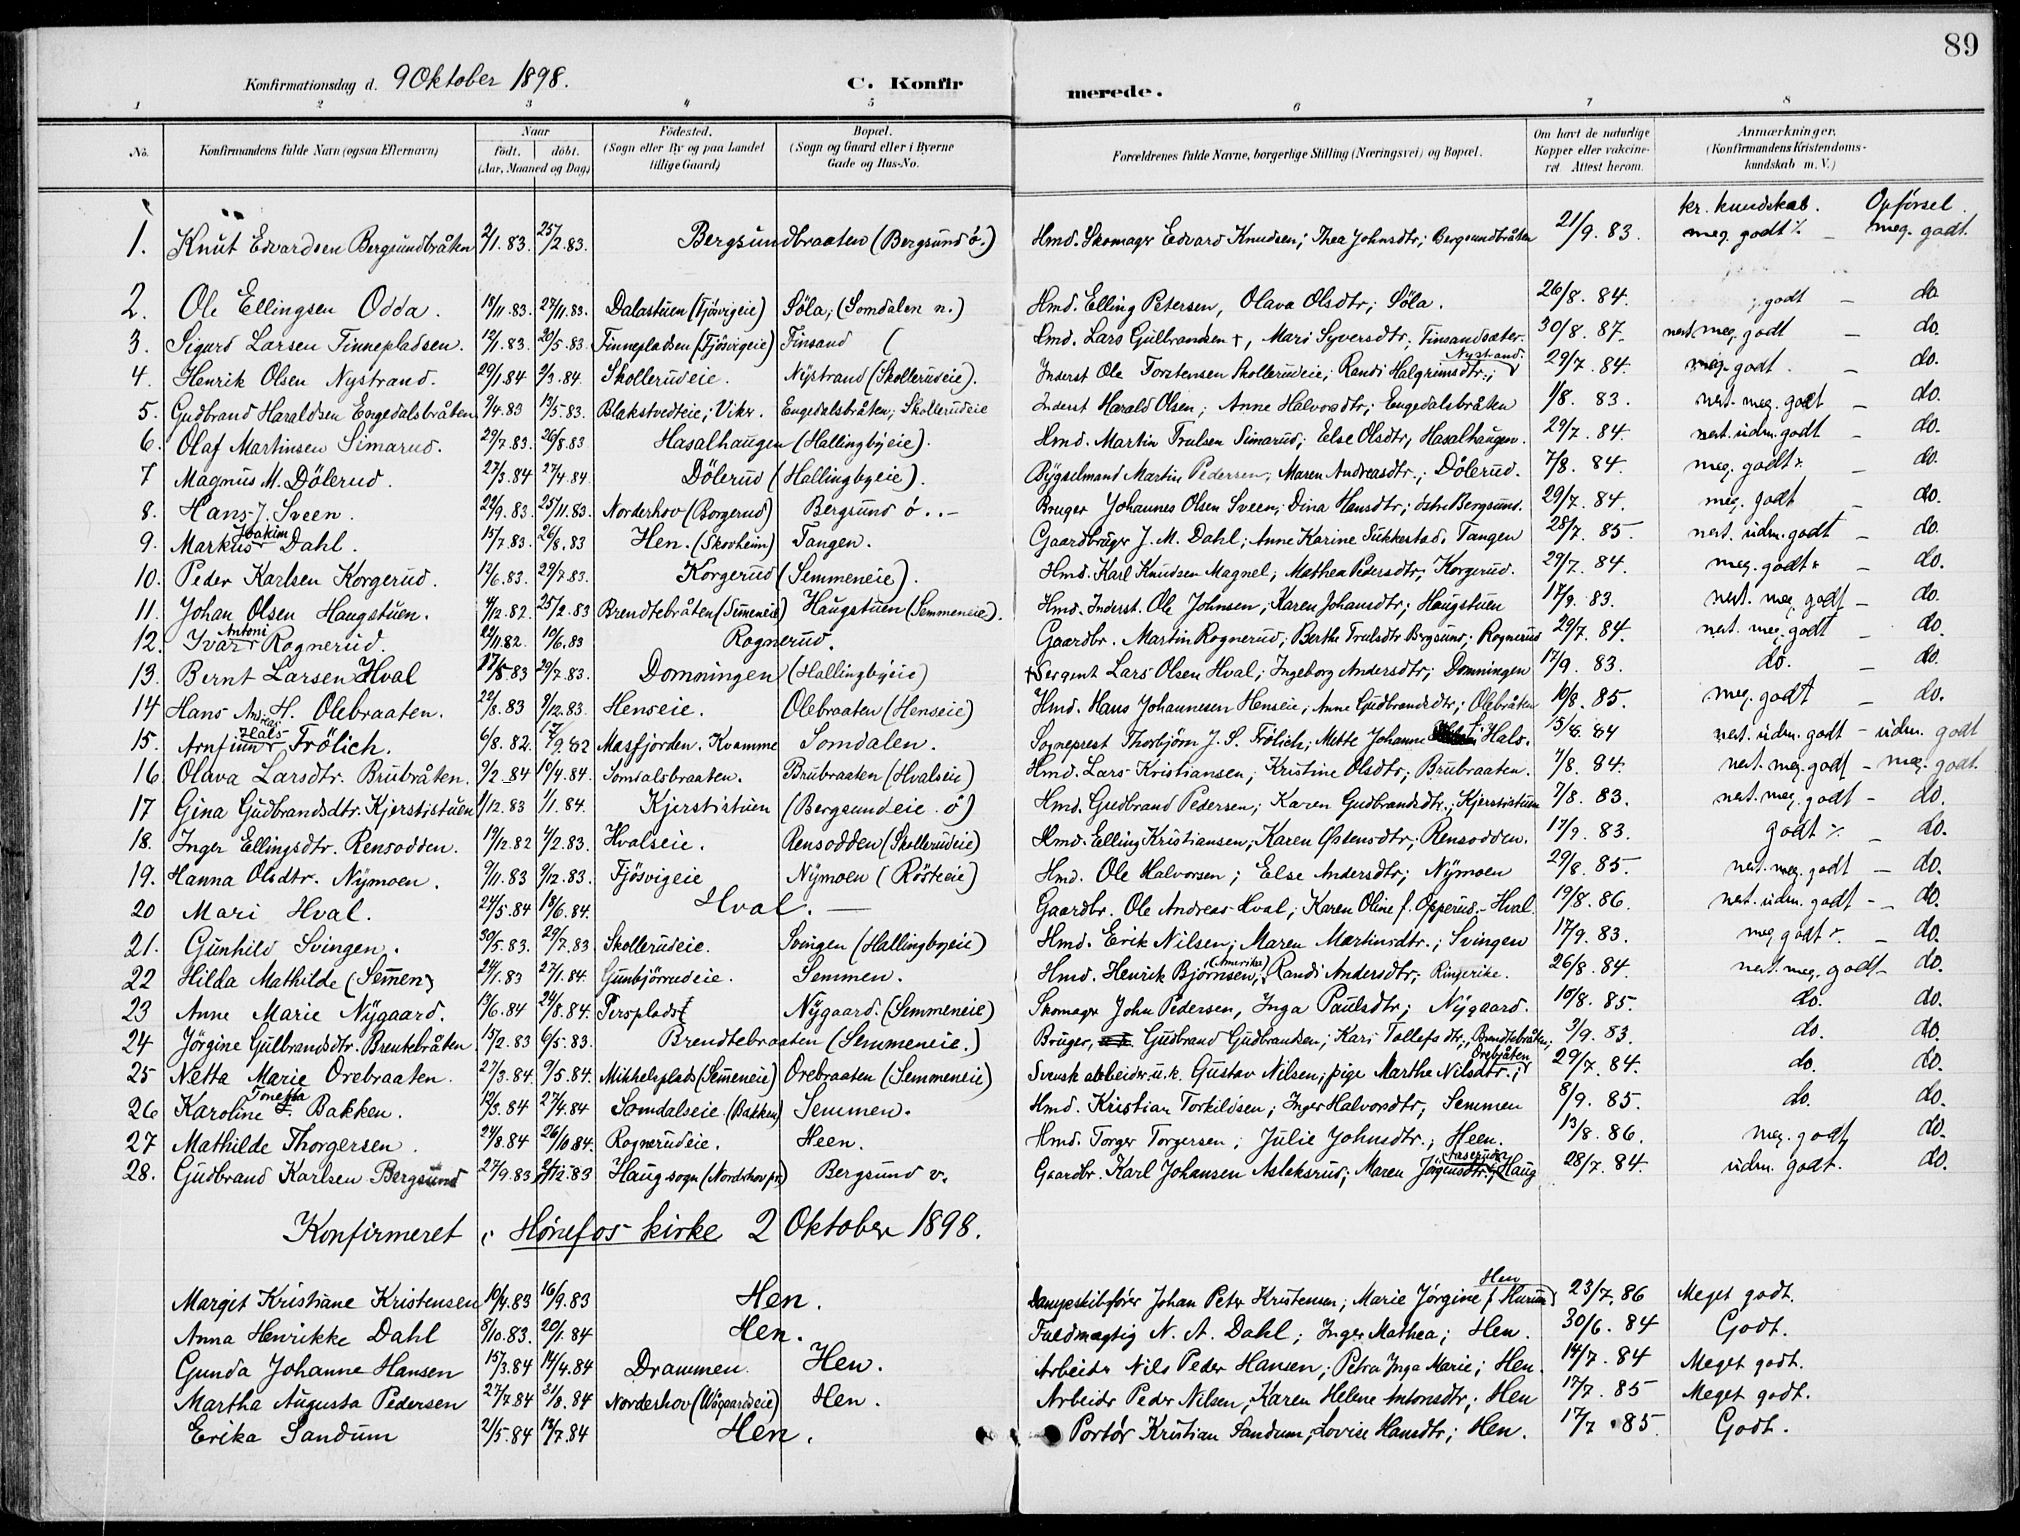 89
Konfirmationsdag d. 9 Oktober 1898. C. Konfir merede.
1 2 3 4 5 6 7 8
No. Konfirmandens fulde Navn (ogsaa Efternavn) Naar født. døbt. (Aar, Maaned og Dag) Fødested. (Sogn eller By og paa Landet tillige Gaard) Bopæl. (Sogn og Gaard eller i Byerne Gade og Hus-No. Forældrenes fulde Navne, borgerlige Stilling (Næringsvei) og Bopæl. Om havt de naturlige Kopper eller vakcineret Attest herom. Anmærkninger. (Konfirmandens Kristendomskundskab m. V.)
kr. kundskab. Opførsel.
1. Knut Edvardsen Bergsundbråten 2/1.83. 25/2.83. Bergsundbraaten (Bergsund ö.) Hmd. Skomager Edvard Knudsen; Thea Johnsdtr; Bergsundbråten 21/9.83. meg. godt % — meg. godt.
2. Ole Ellingsen Odda. 18/11.83. 27/11.83. Dalastuen (Tjösvigeie) Söla, (Somdalen n.) Hmd. Elling Petersen, Olava Olsdtr; Söla. 26/8.84. godt — do.
3. Sigurd Larsen Finnepladsen. 12/1.83. 20/5.83. Finnepladsen (Tjösvigeie) Finsand ( Hmd. Lars Gulbrandsen +, Mari Syversdtr, Finsandsæter. 30/8.87. nest meg. godt — do.
4. Henrik Olsen Nystrand. 29/1.84 2/3.84. Skollerudeie. Nystrand (Skollerudeie). Inderst Ole Torstensen Skollerudeie; Randi Halgrimsdtr.; Nystrand. 29/7.84. meg. godt. — do.
5. Gudbrand Haraldsen Engedalsbråten 9/4.83 13/5.83. Blakstvedteie; Vikr. Engedalsbråten; Skollerudeie Inderst Harald Olsen; Anne Halvorsdtr; Engedalsbråten 1/8.83. nest. meg. godt — do.
6. Olaf Martinsen Simarud. 29/7.83. 26/8.83 Hasalhaugen (Hallingbyeie). Hmd. Martin Trulsen Simarud; Else Olsdtr, Hasalhaugen. 29/7.84. nest. udm. godt — do.
7 Magnus M. Dölerud. 27/3.84 27/4.84. Dölerud (Hallingbyeie). Bygselmand Martin Pedersen; Maren Andreasdtr.; Dölerud. 7/8.84. meg. godt — do.
8. Hans J. Sveen. 22/9.83. 25/11.83. Norderhov (Borgerud) Bergsund ö.. – Bruger Johannes Olsen Sveen; Dina Hansdtr; östre Bergsund. 29/7.84. meg. godt — do.
9. Markus Joakim Dahl. 15/7.83. 26/8.83 Hen. (Skovheim) Tangen. Gaardbruger J. M. Dahl; Anne Karine Tukkestad. Tangen 28/7.85. nest. udm. godt — do.
10. Peder Karlsen Korgerud. 13/6.83. 29/7.83. Korgerud (Semmeneie). Hmd. Karl Knudsen Magnel; Mathea Pedersdtr; Korgerud. 29/7.84. meg. godt — do.
11. Johan Olsen Haugstuen. 4/12.82. 25/2.83 Brendtebråten (Semeneie) Haugstuen (Semmeneie). Hmd. Inderst. Ole Johnsen; Karen Johansdtr; Haugstuen 17/9.83. nest. meg. godt — do.
12. Ivar Antoni Rognerud. 22/11.82. 10/6.83 Rognerud. Gaardbr. Martin Rognerud; Berthe Trulsdtr Bergsund; Rognerud 29/7.84. nest. meg. godt — do.
13. Bernt Larsen Hval 17/5.83 29/7.83. Domningen (Hallingbyeie) + Sergent Lars Olsen Hval; Ingeborg Andersdtr; Domningen 17/9.83. do. — do.
14 Hans Andreas H. Olebraaten. 22/8.83 9/12.83. Henseie. Olebraaten (Henseie) Hmd. Hans Johannesen Henseie; Anne Gudbrandsdtr; Olebråten 10/8.85. meg. godt — do.
15. Arnfinn Hals Frölich. 6/8.82. 17/9.82 Masfjorden. Kvamme Somdalen. Sogneprest Thorbjörn J. S. Frölich; Mette Johanne f. Hals. 15/8.84 nest. udm. godt – udm. godt
16 Olava Larsdtr. Brubråten. 9/2.84 10/4.84. Somdalsbraaten. Brubraaten (Hvalseie) Hmd. Lars Kristiansen; Kristine Olsdtr; Brubraaten. 7/8.84. nest. meg. godt – meg. godt.
17 Gina Gudbrandsdtr. Kjerstistuen 1/12.83 1/1.84. Kjerstistuen (Bergsundeie ö) Hmd. Gudbrand Pedersen; Karen Gudbrandsdtr.; Kjerstistuen 7/8.83. nest. meg. godt – do.
18. Inger Ellingsdtr. Rensodden. 19/12.82 4/2.83. Hvalseie. Rensodden (Skollerudeie) Hmd. Elling Kristiansen; Karen Østensdtr; Rensodden. 17/9.83. godt % — do.
19. Hanna Olsdtr. Nymoen. 9/11.83 9/12.83. Fjösvigeie Nymoen (Rösteeie) Hmd. Ole Halvorsen; Else Andersdtr; Nymoen 29/8.85. nest. meg. godt — do.
20 Mari Hval. 24/5.84 18/6.84. Hval. — Gaardbr. Ole Andreas Hval; Karen Oline f. Opperud. – Hval. 19/8.86. nest. udm. godt – do.
21. Gunhild Svingen. 30/5.83. 29/7.83 Skollerudeie. Svingen (Hallingbyeie) Hmd. Erik Nilsen; Maren Martinsdtr.; Svingen 17/9.83. meg godt — do.
22 Hilda Mathilde (Semen) 24/1.83 27/1.84. Gunbjörrudeie. Semmen. Hmd. Henrik Bjørnsen, (Amerika) Randi Andersdtr; Ringerike. 26/8.84. nest. meg. godt – do.
23 Anne Marie Nygaard. 13/6.84 24/8.84. Persplads Nygaard. (Semmeneie) Skomager John Pedersen, Inga Paulsdtr; Nygaard. 15/8.85. do. do.
24 Jörgine Gulbrandsdtr. Brentebråten 15/2.83 6/5.83. Brendtebraaten (Semmeneie.) Bruger, Gudbrand Gudbrandsen; Kari Tollefsdtr; Brendtebråten; 9/9.83. do. do.
25 Netta Marie Orebraaten. 27/3.84. 9/5.84. Mikkelsplads (Semeneie) Orebraaten (Semmeneie) Svensk arbeider u.k. Gustav Nilsen; pige Marthe Nilsdtr.; Orebråten 29/7.84. do. do.
26 Karoline Tonetta T. Bakken. 12/3.84 27/4.84 Somdalseie (Bakken) Semmen. Hmd. Kristian Torkildsen; Inger Halvorsdtr; Semmen 8/9.85. do. do.
27 Mathilde Thorgersen. 24/8.84 26/0.84. Rognerudeie. Heen. Hmd. Torger Torgersen; Julie Johnsdtr.; Heen. 13/8.86. meg. godt do.
28. Gudbrand Karlsen Bergsund 27/9.83 2/12.83 Haug sogn (Norderhov pr.) Bergsund v. Gaardbr. Karl Johansen Aslaksrud; Maren Jörgensdtr.; Haug 28/7.84. udm. godt. do.
Konfirmeret i Hønefos kirke 2 Oktober 1898.
Margit Kristiane Kristensen 10/4.83 16/9.83 Hen. Dampskibsfører Johan Peter Kristensen; Marie Jørgine f. Hurum Hen 23/7.86 Meget godt.
Anna Henrikke Dahl 8/10.83. 20/1.84 Hen. Fuldmægtig N. A. Dahl; Inger Mathea; Hen. 30/6.84 Godt.
Gunda Johanne Hansen 15/3.84 14/4.84 Drammen Hen. Arbeider Nils Peder Hansen; Petra Inga Marie; Hen. 14/7.84 Meget godt.
Martha Augusta Pedersen 27/7.84 31/8.84 Norderhov (Vågaardseie) Hen. Arbeider Peder Nilsen, Karen Helene Antonsdtr; Hen 17/7.85 Meget godt.
Erika Sandum 21/5.84 13/7.84 Hen. Portør Kristian Sandum; Lovise Hansdtr; Hen. 17/7.85 Godt.